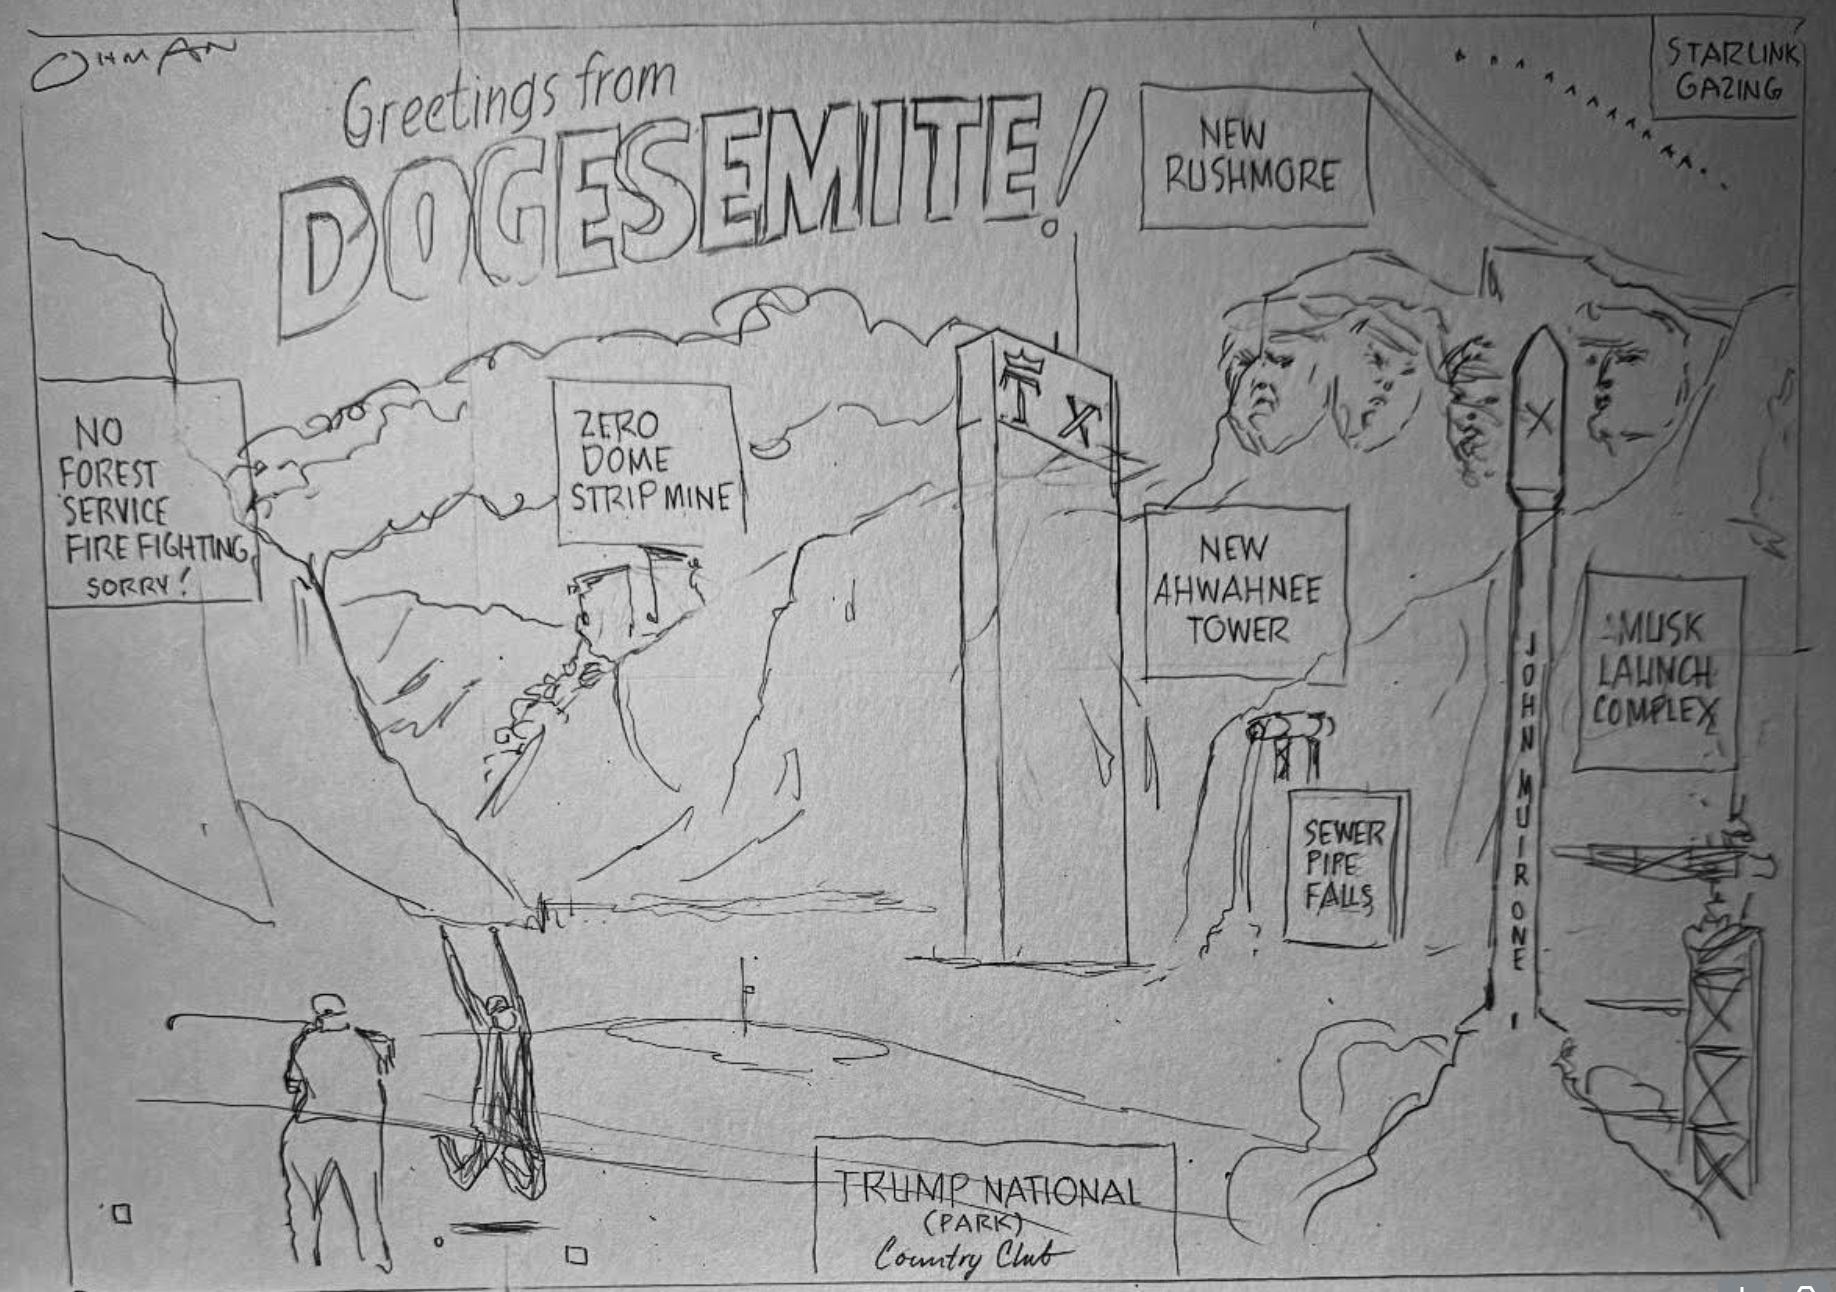 OHMAN
Greetings from
DOGESEMITE!
NEW
RUSHMORE
STARLINK
GAZING
NO
FOREST
SERVICE
FIRE FIGHTING,
SORRY!
ZERO
DOME
STRIP MINE
T X
NEW
AHWAHNEE
TOWER
X
JOHN MUIR ONE
MUSK
LAUNCH
COMPLEX
SEWER
PIPE
FALLS
TRUMP NATIONAL
(PARK)
Country Club